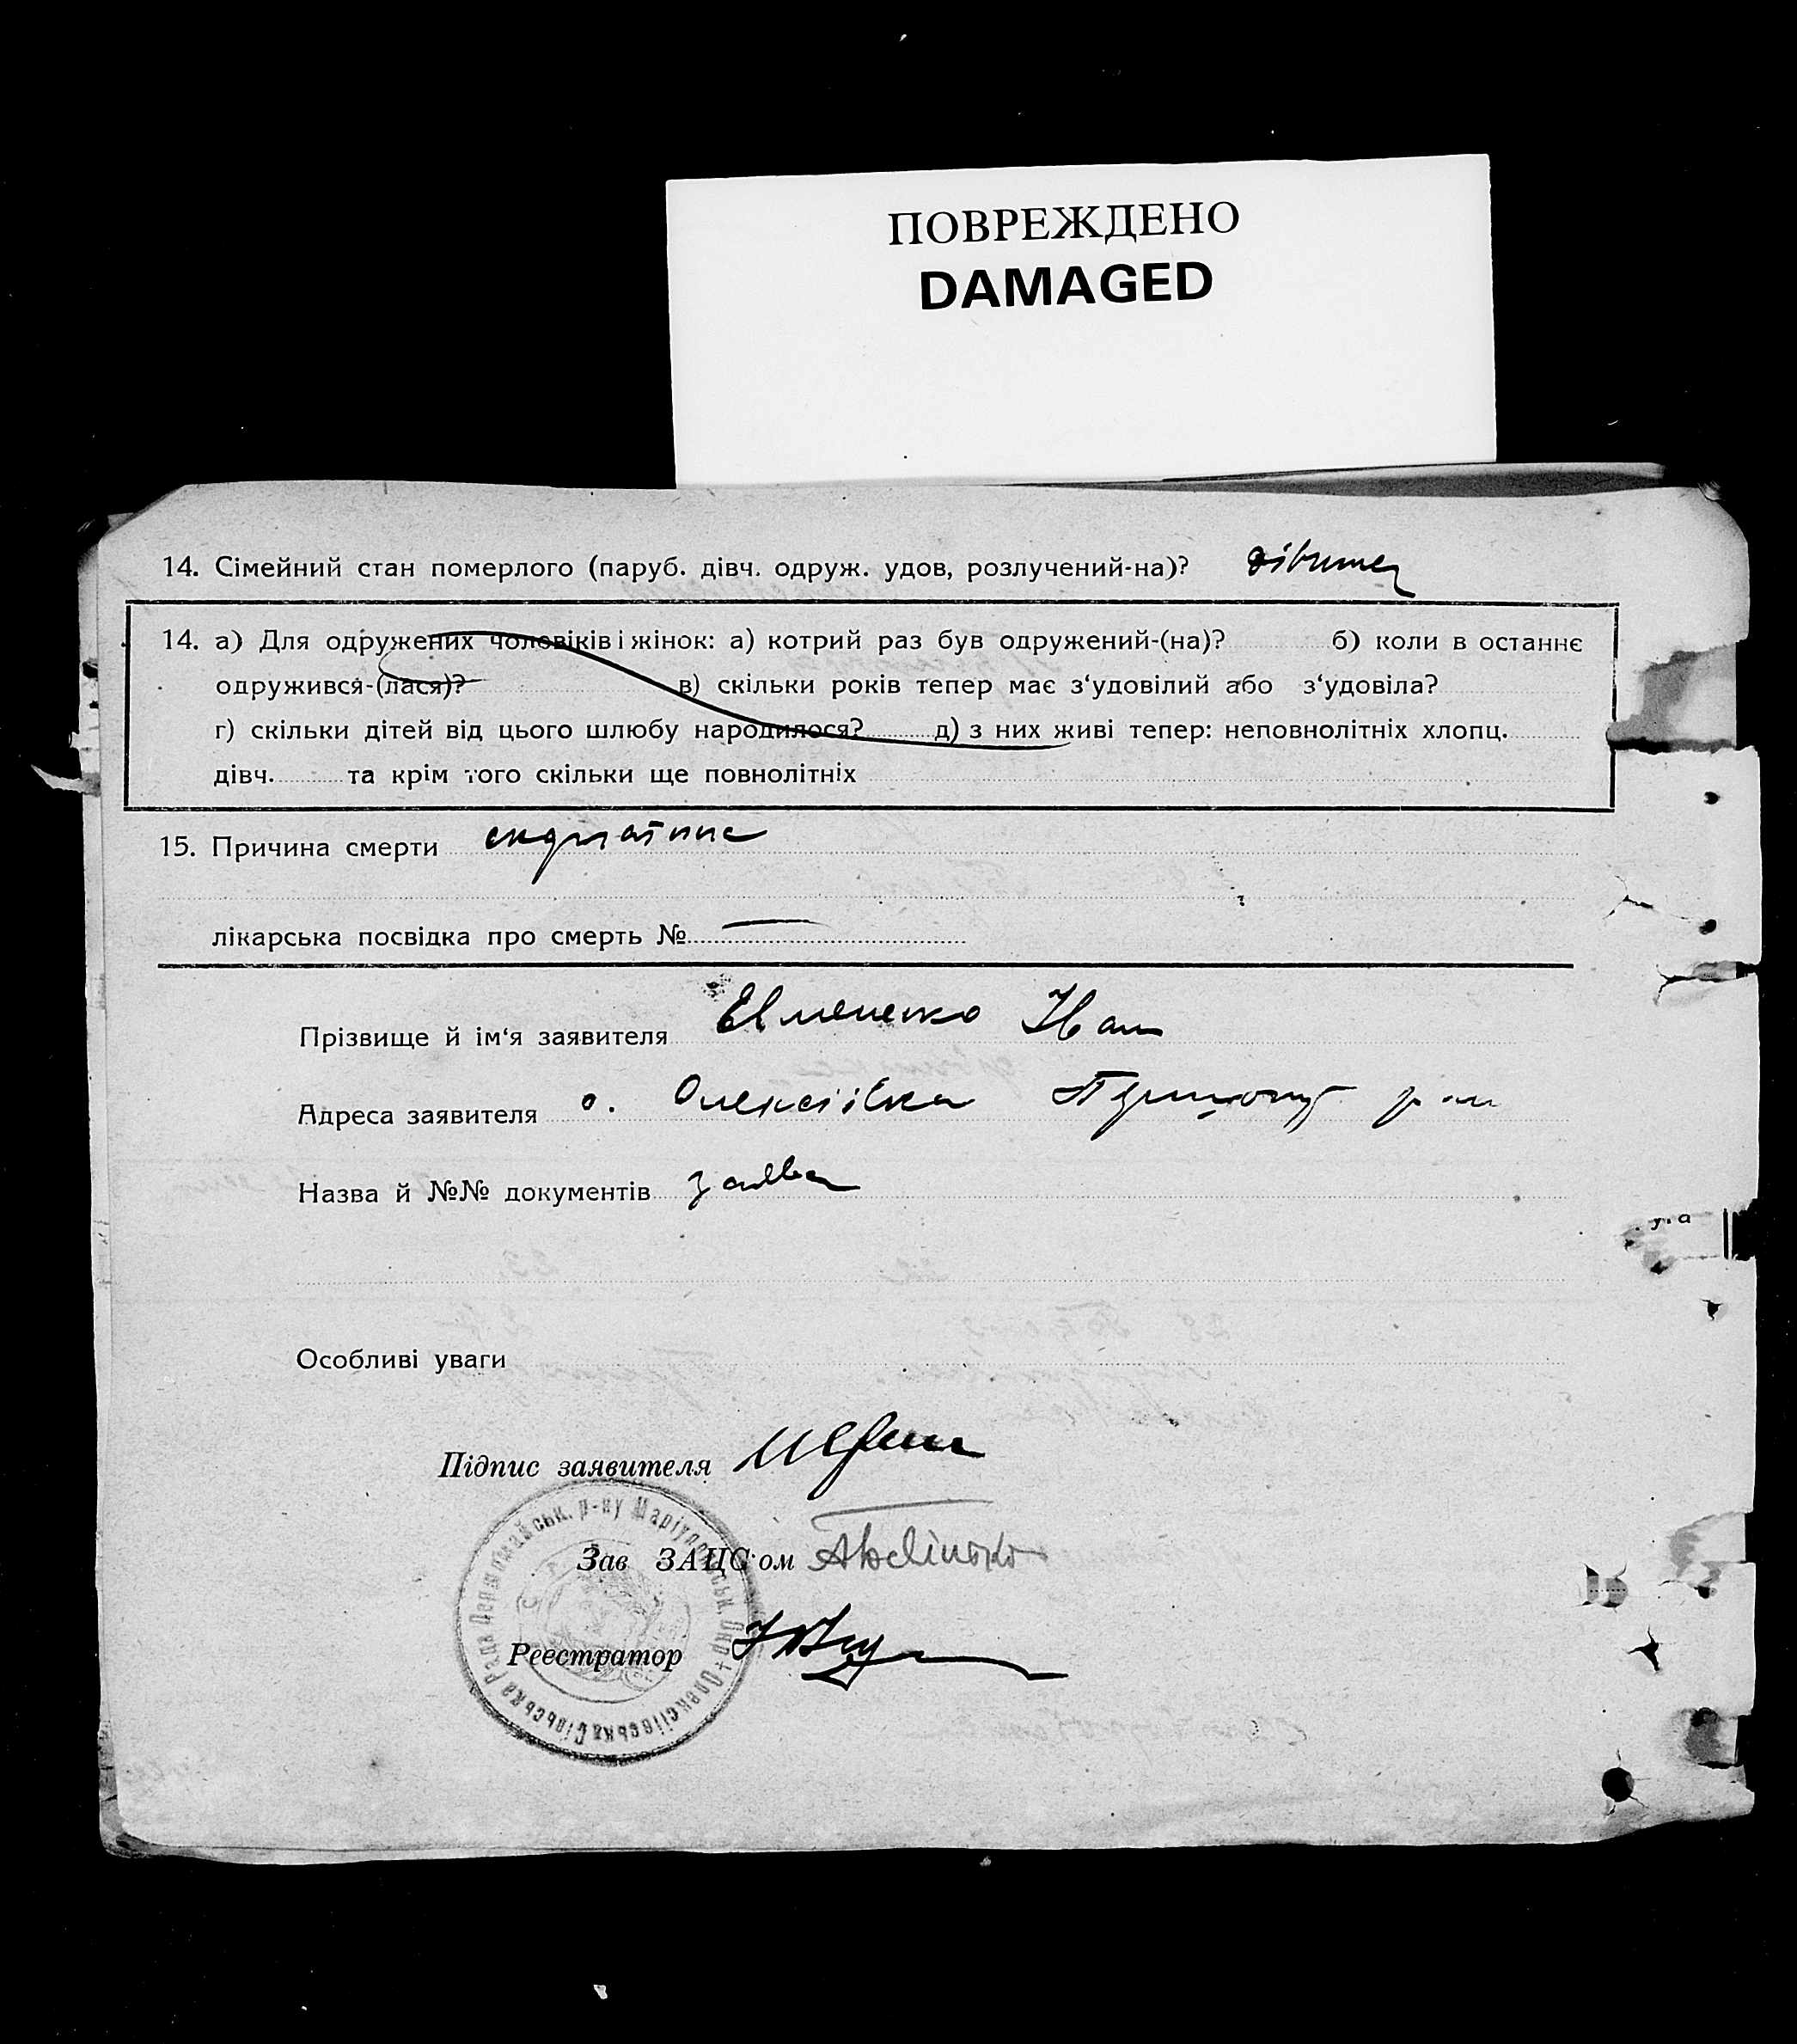 ПОВРЕЖДЕНО
DAMAGED
14. Сімейний стан померлого (паруб. дівч. одруж. удов, розлучений-на)?
14. а) Для одружених чоловіків і жінок: а) котрий раз був одружений-(на)? б) коли в останнє
одружився-(лася)? в) скільки років тепер має з‘удовілий або з‘удовіла?
г) скільки дітей від цього шлюбу народилося? д) з них живі тепер: неповнолітніх хлопц.
дівч. та крім того скільки ще повнолітніх
15. Причина смерти скарлатина
лікарська посвідка про смерть №
Прізвище й ім‘я заявителя Евмененко Иван
Адреса заявителя с. Олексіївка Першому р-ну
Назва й №№ документів заява
Особливі уваги
Підпис заявителя
Зав ЗАЦС‘ом
Реєстратор
Олексіївська Сільська Рада Першомайськ. р-ну Маріупольськ. Окр